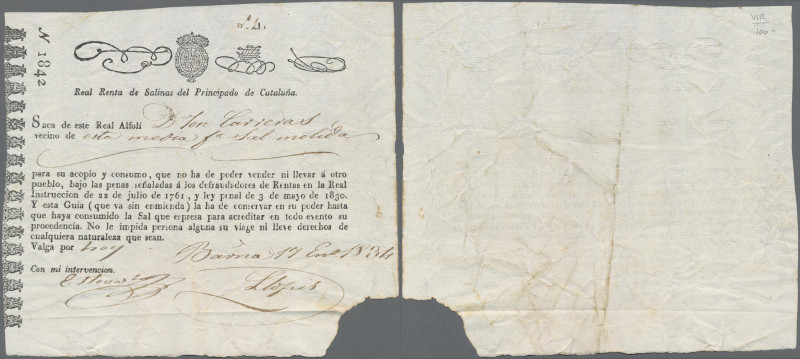 N 1842
Real Renta de Salinas del Principado de Cataluña.
Saca de este Real Alfolí D. Carreras
vecino de esta media fa. Sal molida
para su acopio y consumo, que no ha de poder vender ni llevar á otro
pueblo, bajo las penas señaladas á los defraudadores de Rentas en la Real
Instruccion de 22 de julio de 1761, y ley penal de 3 de mayo de 1830.
Y esta Guia (que va sin enmienda) la ha de conservar en su poder hasta
que haya consumido la Sal que espresa para acreditar en todo evento su
procedencia. No le impida persona alguna su viage ni lleve derechos de
cualquiera naturaleza que sean.
Valga por hoy Barna 17 Eno 1834
Con mi intervencion.
Llopis
VIR
100-